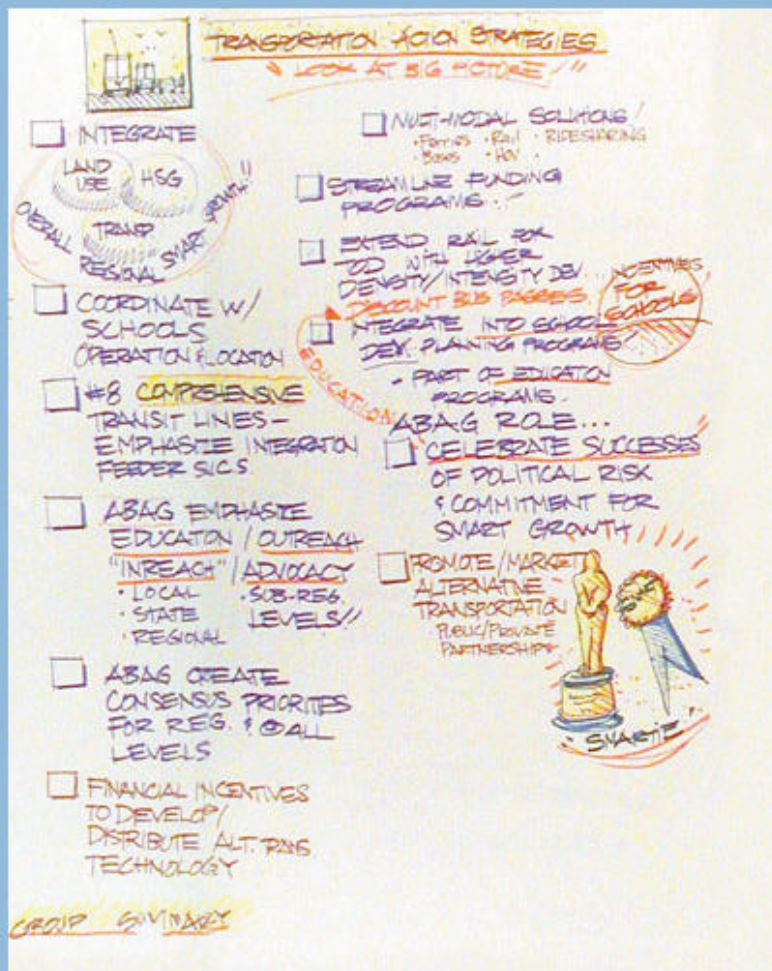 TRANSPORTATION ACTION STRATEGIES
"LOOK AT BIG PICTURE!"
INTEGRATE
LAND
USE
HSG
TRANSP
OVERALL REGIONAL SMART GROWTH!!
COORDINATE W/
SCHOOLS
OPERATION & LOCATION
#8 COMPREHENSIVE
TRANSIT LINES-
EMPHASIZE INTEGRATION
FEEDER
ABAG EMPHASIZE
EDUCATION / OUTREACH
"INREACH" / ADVOCACY
• LOCAL • SUB-REG.
• STATE LEVELS!!
• REGIONAL
ABAG CREATE
CONSENSUS PRIORITES
FOR REG. & @ ALL
LEVELS
FINANCIAL INCENTIVES
TO DEVELOP/
DISTRIBUTE ALT. TRANS.
TECHNOLOGY
GROUP SUMMARY
MULTI-MODAL SOLUTIONS!
• Ferries • Rail • RIDESHARING
• Buses • HOV
STREAMLINE FUNDING
PROGRAMS..
EXTEND RAIL FOR
TOD WITH HIGHER
DENSITY/INTENSITY DEV...
DISCOUNT BUS PASSES.
INCENTIVES
FOR
SCHOOLS
INTEGRATE INTO SCHOOL
DEV. PLANNING PROGRAMS!
• PART OF EDUCATION
PROGRAMS.
EDUCATION
ABAG ROLE...
CELEBRATE SUCCESSES
OF POLITICAL RISK
& COMMITMENT FOR
SMART GROWTH
PROMOTE/MARKET
ALTERNATIVE
TRANSPORTATION
• PUBLIC/PRIVATE
PARTNERSHIPS
"SMARTIE"